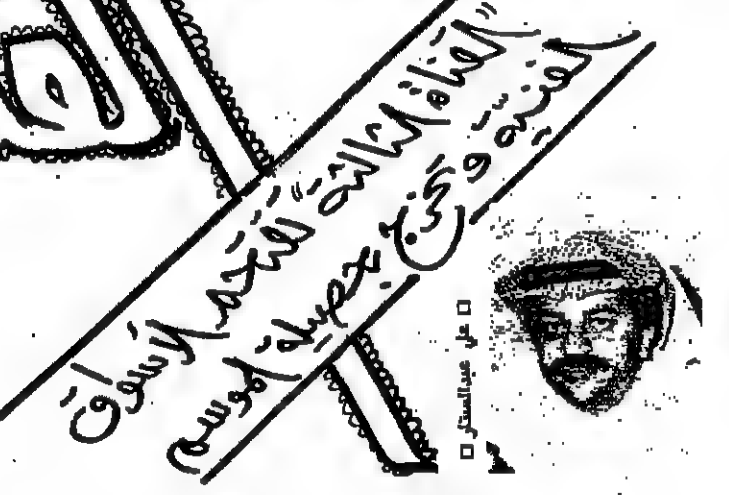 "القناة الثالثة" تقتحم الأسواق
الفنية وتخرج بحصيلة الموسم
□ علي عبدالستار □